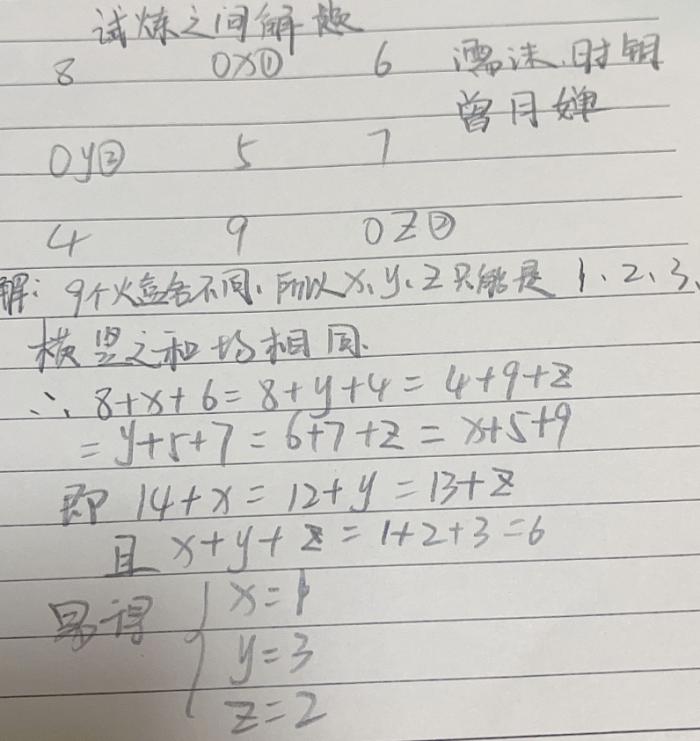 试炼之间解题
8 0X① 6 濡沫.时钥
曾月婵
0y② 5 7
4 9 0Z②
解：9个火盒各不同.所以X、y、Z只能是 1、2、3、
横竖之和均相同.
∴ 8+x+6=8+y+4=4+9+z
=y+5+7=6+7+z=x+5+9
即 14+x=12+y=13+z
且 x+y+z=1+2+3=6
易得 { x=1
y=3
z=2